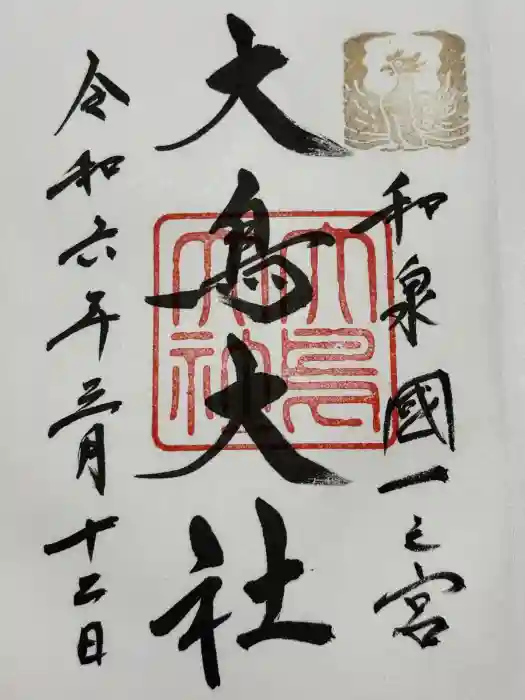 和泉國一之宮
大鳥大社
大鳥大社
令和六年三月十二日